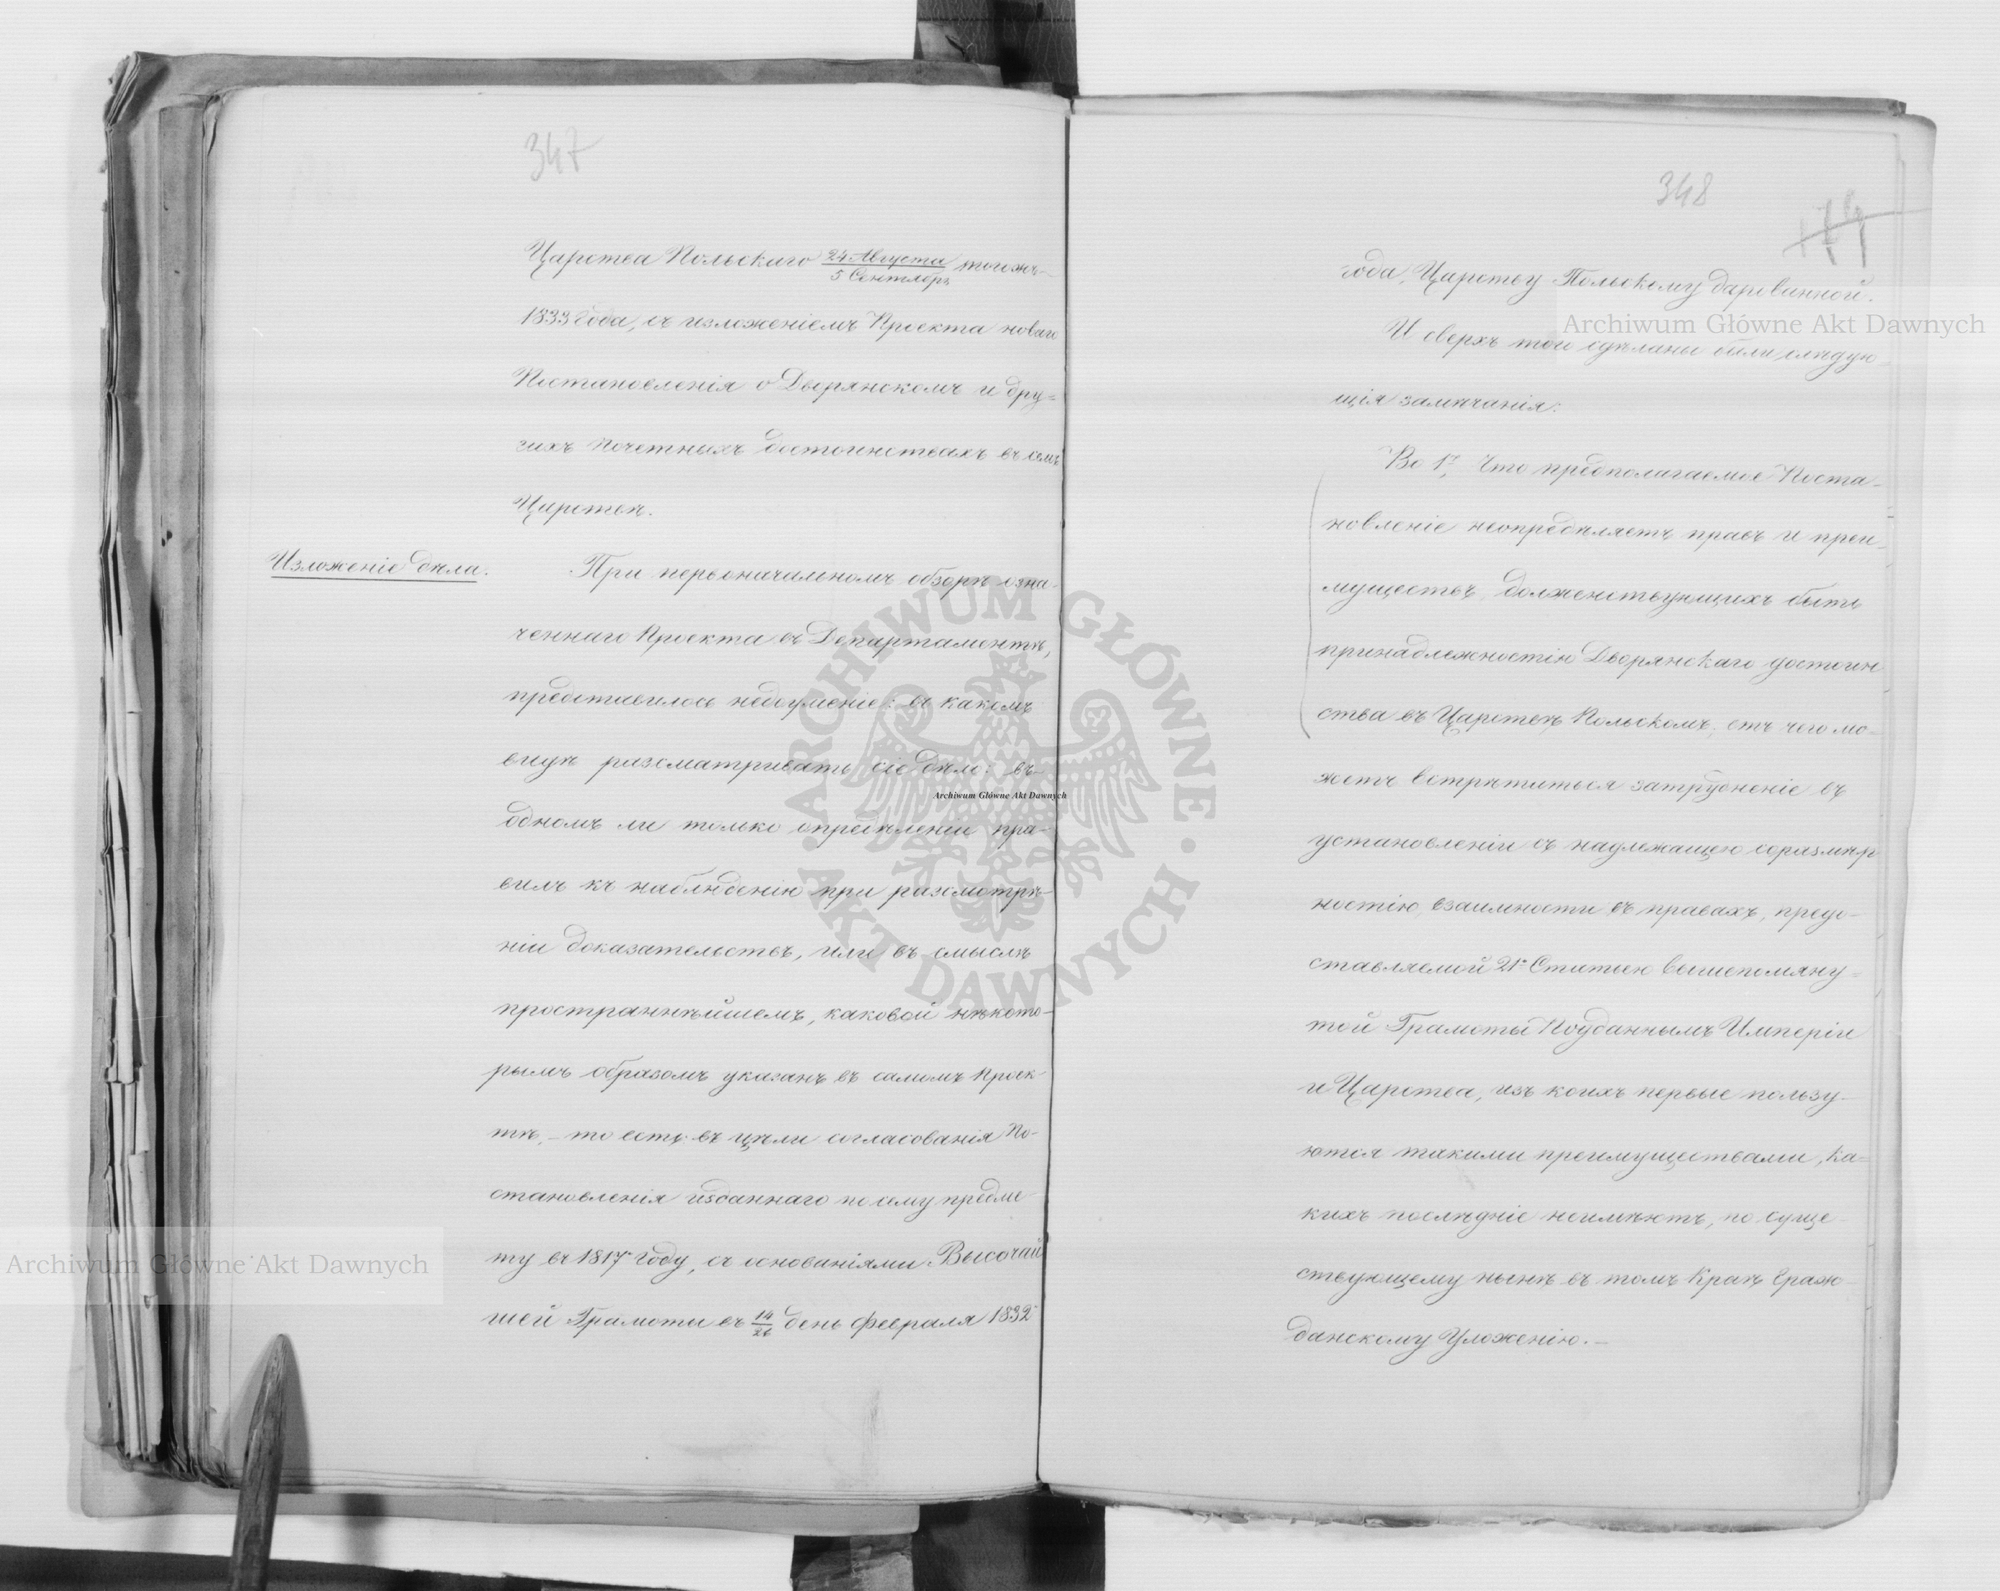 347
Царства Польскаго 24 Августа / 5 Сентября тогожъ
1833 года, съ изложеніемъ Проекта новаго
Постановленія о Дворянскомъ и дру=
гихъ почетныхъ достоинствахъ въ семъ
Царствѣ.
Изложеніе дѣла.
При первоначальномъ обзорѣ озна-
ченнаго Проекта въ Департаментѣ,
представилось недоуменіе: въ какомъ
видѣ разсматривать сіе дѣло: въ
одномъ ли только опредѣленіи пра-
вилъ къ наблюденію при разсмотрѣ-
ніи доказательствъ, или въ смыслѣ
пространнѣйшемъ, каковой нѣкото-
рымъ образомъ указанъ въ самомъ Проек-
тѣ, – то есть въ цѣли согласованія По-
становленія изданнаго по сему предме-
ту въ 1817 году, съ основаніями Высочай
шей Грамоты въ 14/26 день февраля 1832
348
174
года, Царству Польскому дарованной.
И сверхъ того сдѣланы были слѣдую-
щія замѣчанія:
Во 1х, Что предполагаемое Поста-
новленіе неопредѣляетъ правъ и преи-
муществъ, долженствующихъ быть
принадлежностію Дворянскаго достоин
ства въ Царствѣ Польскомъ, отъ чего мо-
жетъ встрѣтиться затрудненіе въ
установленіи съ надлежащею соразмѣр
ностію взаимности въ правахъ, предо-
ставляемой 21ю Статьею вышепомяну-
той Грамоты Подданнымъ Имперіи
и Царства, изъ коихъ первые пользу-
ются такими преимуществами, ка-
кихъ послѣдніе неимѣютъ, по суще-
ствующему нынѣ въ томъ Краѣ Граж-
данскому Уложенію. –
Archiwum Główne Akt Dawnych
Archiwum Główne Akt Dawnych
Archiwum Główne Akt Dawnych
ARCHIWUM GŁÓWNE · AKT DAWNYCH ·